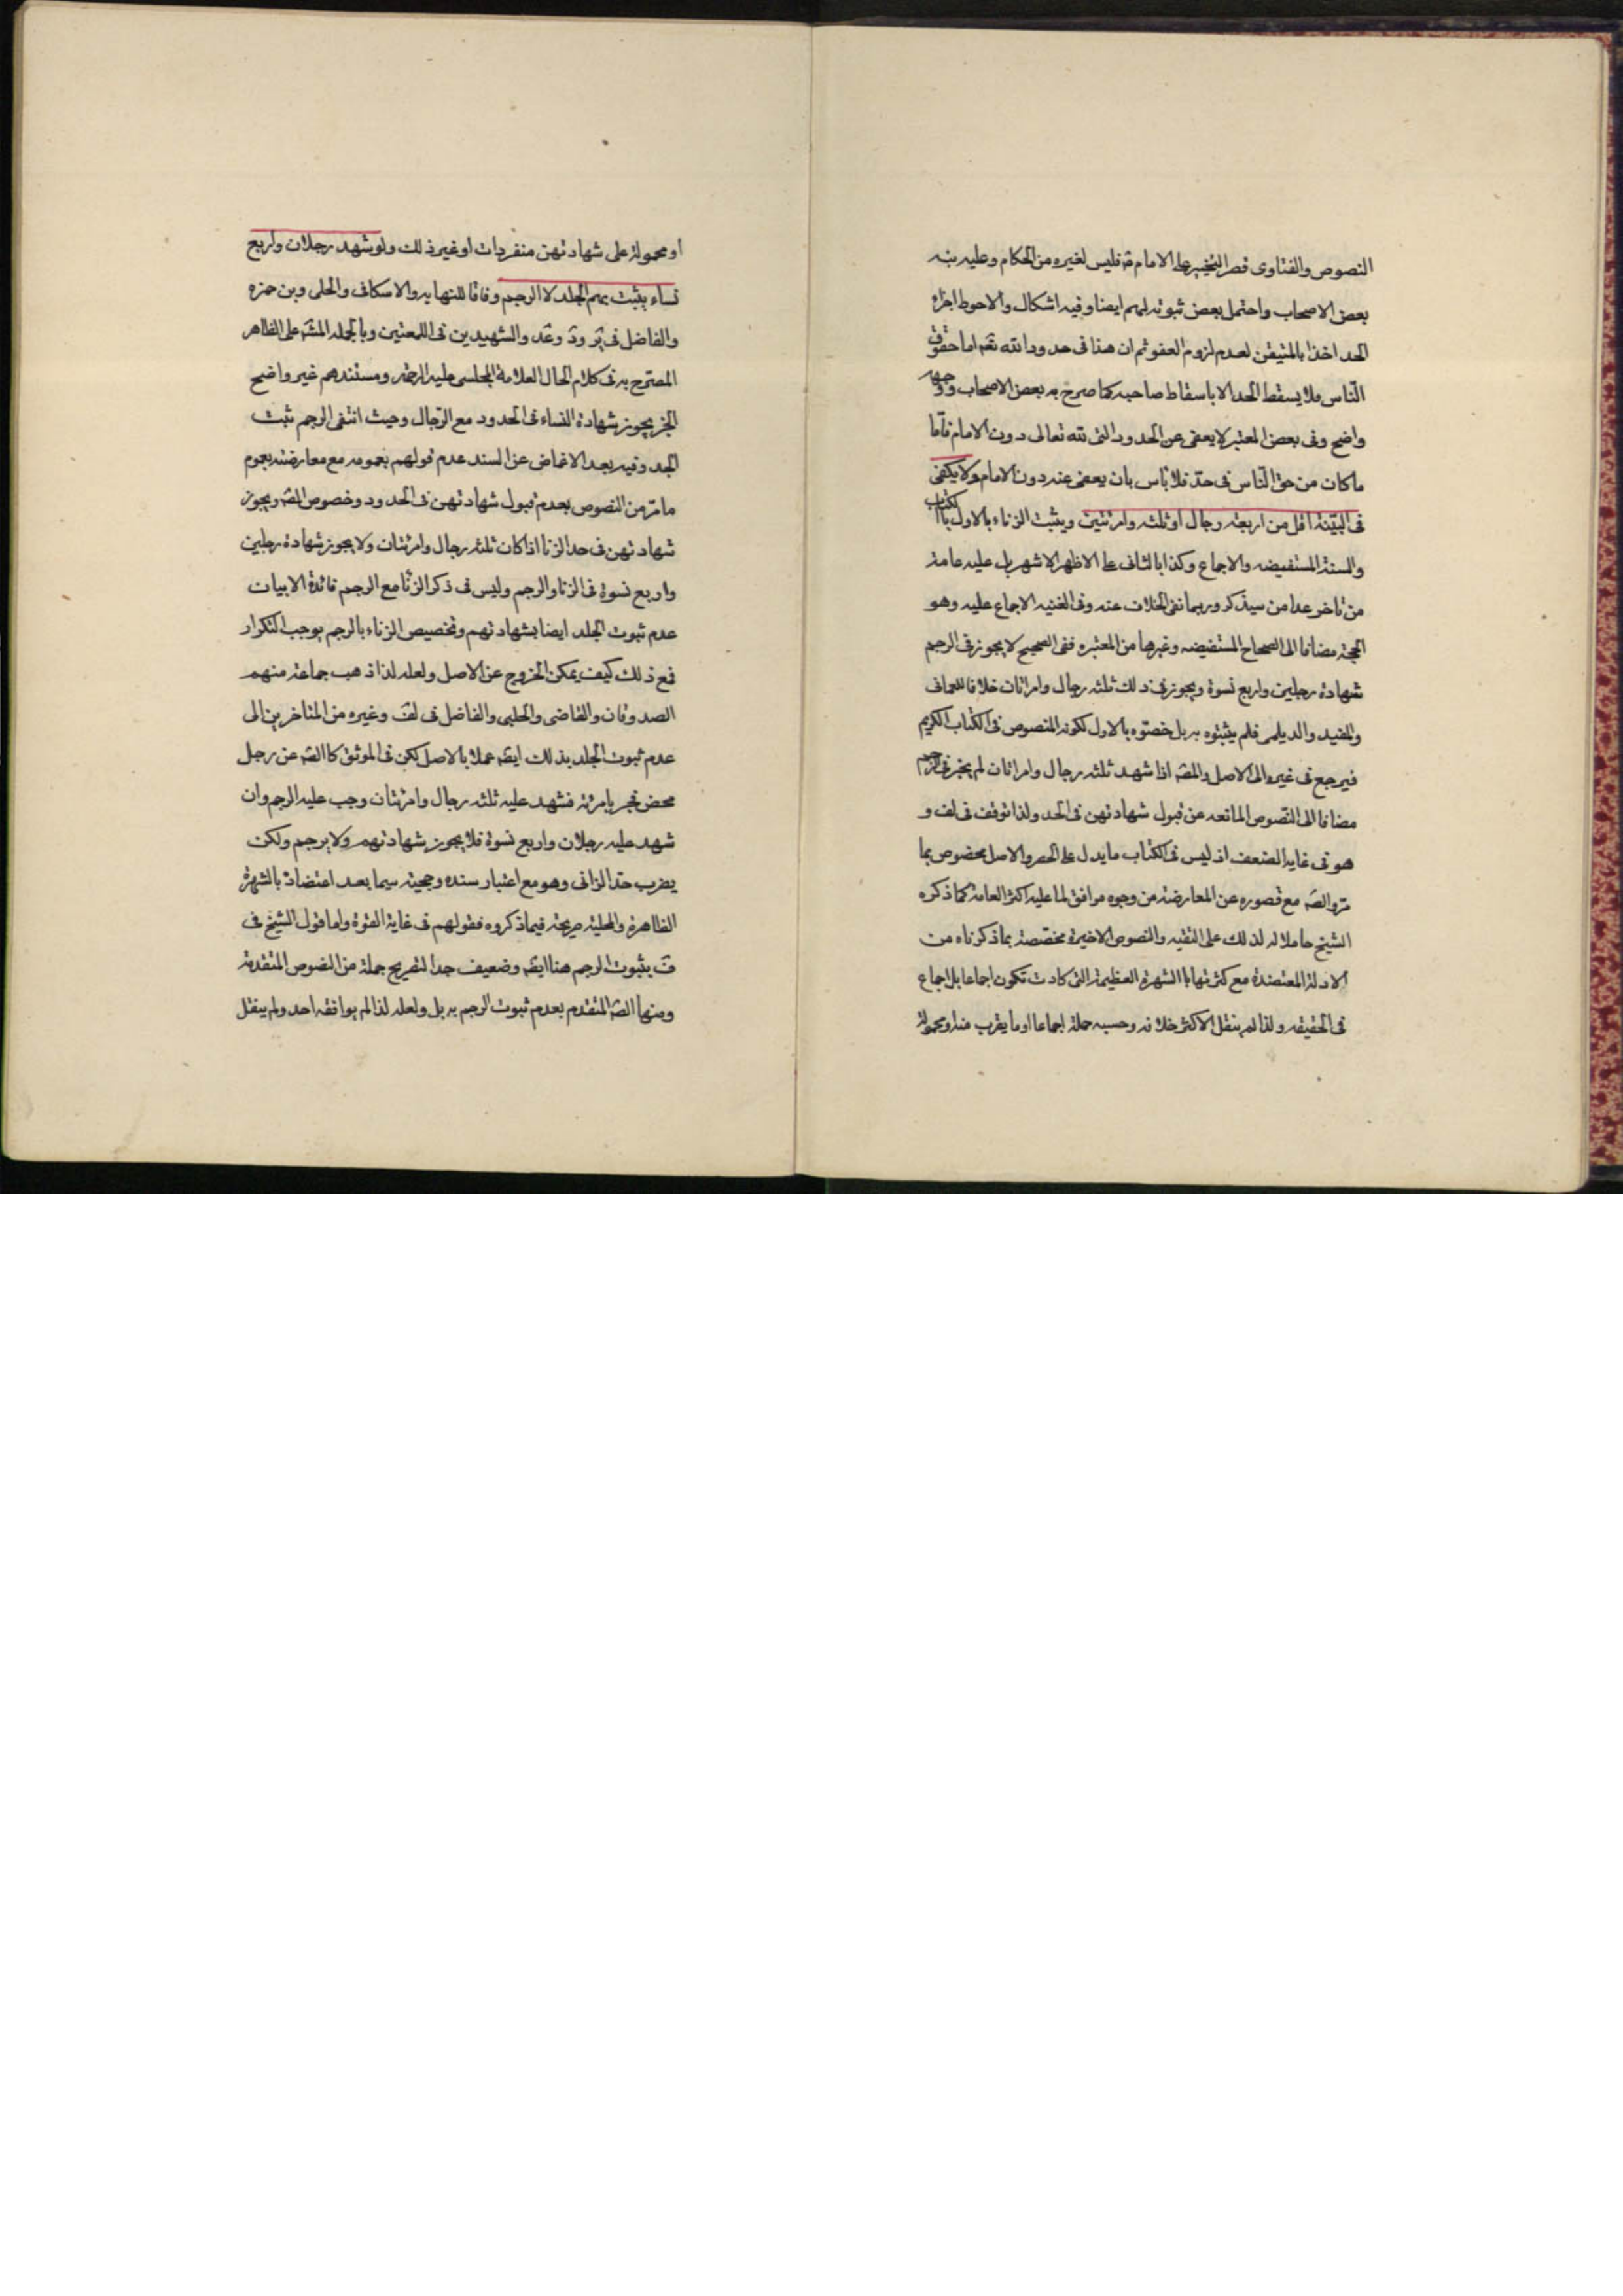 النصوص والفتاوى قصر التخيير على الامام ع فليس لغيره من الحكام وعليه نبه
بعض الاصحاب واحتمل بعض ثبوته لهم ايضا وفيه اشكال والاحوط اجراء
الحد اخذا بالمتيقن لعدم لزوم العفو ثم ان هذا فى حدود الله تعم اما حقوق
الناس فلا يسقط الحد الا باسقاط صاحبه كما صرح به بعض الاصحاب ووجهه
واضح وفى بعض المعتبر لا يعفى عن الحدود التى لله تعالى دون الامام فاما
ما كان من حق الناس فى حد فلا باس بان يعفى عنه دون الامام ولا يكفى
فى البينة اقل من اربعه رجال او ثلثه وامرئتين ويثبت الزناء بالاول بالكتاب
والسنة المستفيضه والاجماع وكذا بالثانى على الاظهر الاشهر بل عليه عامة
من تاخر عدا من سيذكر وربما نفى الخلاف عنه وفى الغنيه الاجماع عليه وهو
الحجة مضافا الى الصحاح المستفيضه وغيرها من المعتبره ففى الصحيح لا يجوز فى الرجم
شهادة رجلين واربع نسوة ويجوز فى ذلك ثلثه رجال وامراتان خلافا للعمانى
والمفيد والديلمى فلم يثبتوه به بل خصوه بالاول لكونه المنصوص فى الكتاب الكريم
فيرجع فى غيره الى الاصل والصه اذا شهد ثلثه رجال وامراتان لم يجز فى الرجم
مضافا الى النصوص المانعه عن قبول شهادتهن فى الحد ولذا توقف فى لف و
هو فى غايه الضعف اذ ليس فى الكتاب ما يدل على الحصر والاصل مخصوص بما
مر والصه مع قصوره عن المعارضة من وجوه موافق لما عليه اكثر العامة كما ذكره
الشيخ حاملا له لذلك على التقيه والنصوص الاخيرة مخصصة بما ذكرناه من
الادلة المعتضدة مع كثرتها با الشهرة العظيمة التى كادت تكون اجماعا بل اجماع
فى الحقيقه ولذا لم ينقل الاكثر خلافه وحسبه جملة اجماعا او ما يقرب منه او محمولة
او محمولة على شهادتهن منفردات او غير ذلك ولو شهد رجلان واربع
نساء يثبت بهم الجلد لا الرجم وفاقا للنهايه والاسكافى والحلى وبن حمزه
والفاضل فى ير ود وعد والشهيدين فى اللمعتين وبالجمله المشه على الظاهر
المصرح به فى كلام الحال العلامة المجلسى عليه الرحمه ومستندهم غير واضح
الخبر يجوز شهادة النساء فى الحدود مع الرجال وحيث انتفى الرجم ثبت
الجد وفيه بعد الاغماض عن السند عدم قولهم بعمومه مع معارضته بعموم
ما مر من النصوص بعدم قبول شهادتهن فى الحدود وخصوص الصه ويجوز
شهادتهن فى حد الزنا اذا كان ثلثه رجال وامرئتان ولا يجوز شهادة رجلين
واربع نسوة فى الزنا والرجم وليس فى ذكر الزنا مع الرجم فائدة الا بيان
عدم ثبوت الجلد ايضا بشهادتهم وتخصيص الزناء بالرجم يوجب التكرار
فمع ذلك كيف يمكن الخروج عن الاصل ولعله لذا ذهب جماعة منهم
الصدوقان والقاضى والحلبى والفاضل فى لف وغيره من المتاخرين الى
عدم ثبوت الجلد بذلك ايضه عملا بالاصل لكن فى الموثق كا الصه عن رجل
محصن فجر بامرئة فشهد عليه ثلثه رجال وامرئتان وجب عليه الرجم وان
شهد عليه رجلان واربع نسوة فلا يجوز شهادتهم ولا يرجم ولكن
يضرب حد الزانى وهو مع اعتبار سنده وحجيته سيما بعد اعتضاده بالشهرة
الظاهرة والمحكية صريحة فيما ذكروه فقولهم فى غاية القوة واما قول الشيخ فى
ف بثبوت الرجم هنا ايضه وضعيف جدا لتصريح جملة من النصوص المتقدمة
ومنها الصه المتقدم بعدم ثبوت الرجم به بل ولعله لذا لم يوافقه احد ولم ينقل